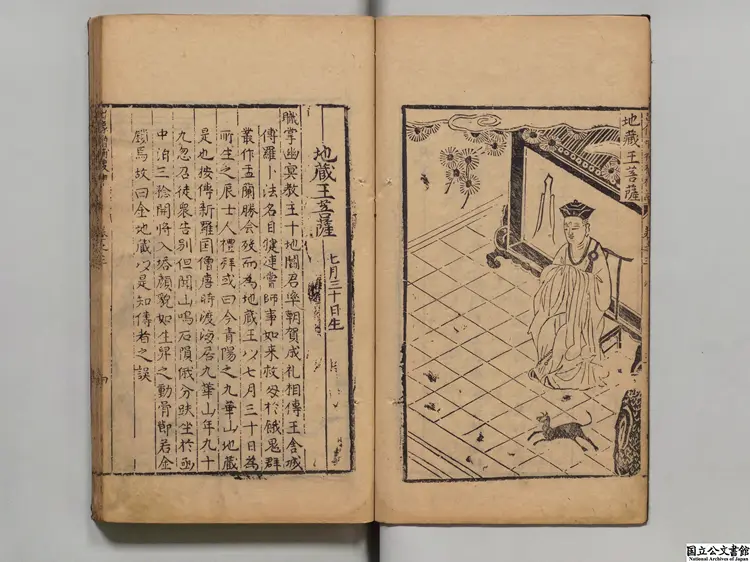 地藏王菩薩
地藏王菩薩
七月三十日生
職掌幽冥教主十地閻君率朝賀成礼相傳王舍城
傳羅卜法名目犍連嘗師事如来救母於餓鬼群
叢作盂蘭勝会歿而為地藏王以七月三十日為
所生之辰士人禮拜或曰今青陽之九華山地藏
是也按傳新羅国僧唐時渡海居九華山年九十
九忽召徒衆告別但聞山鳴石隕俄分趺坐於函
中洎三稔開将入塔顔貌如生舁之動骨節若金
鎖焉故曰金地藏以是知傳者之誤
国立公文書館
National Archives of Japan